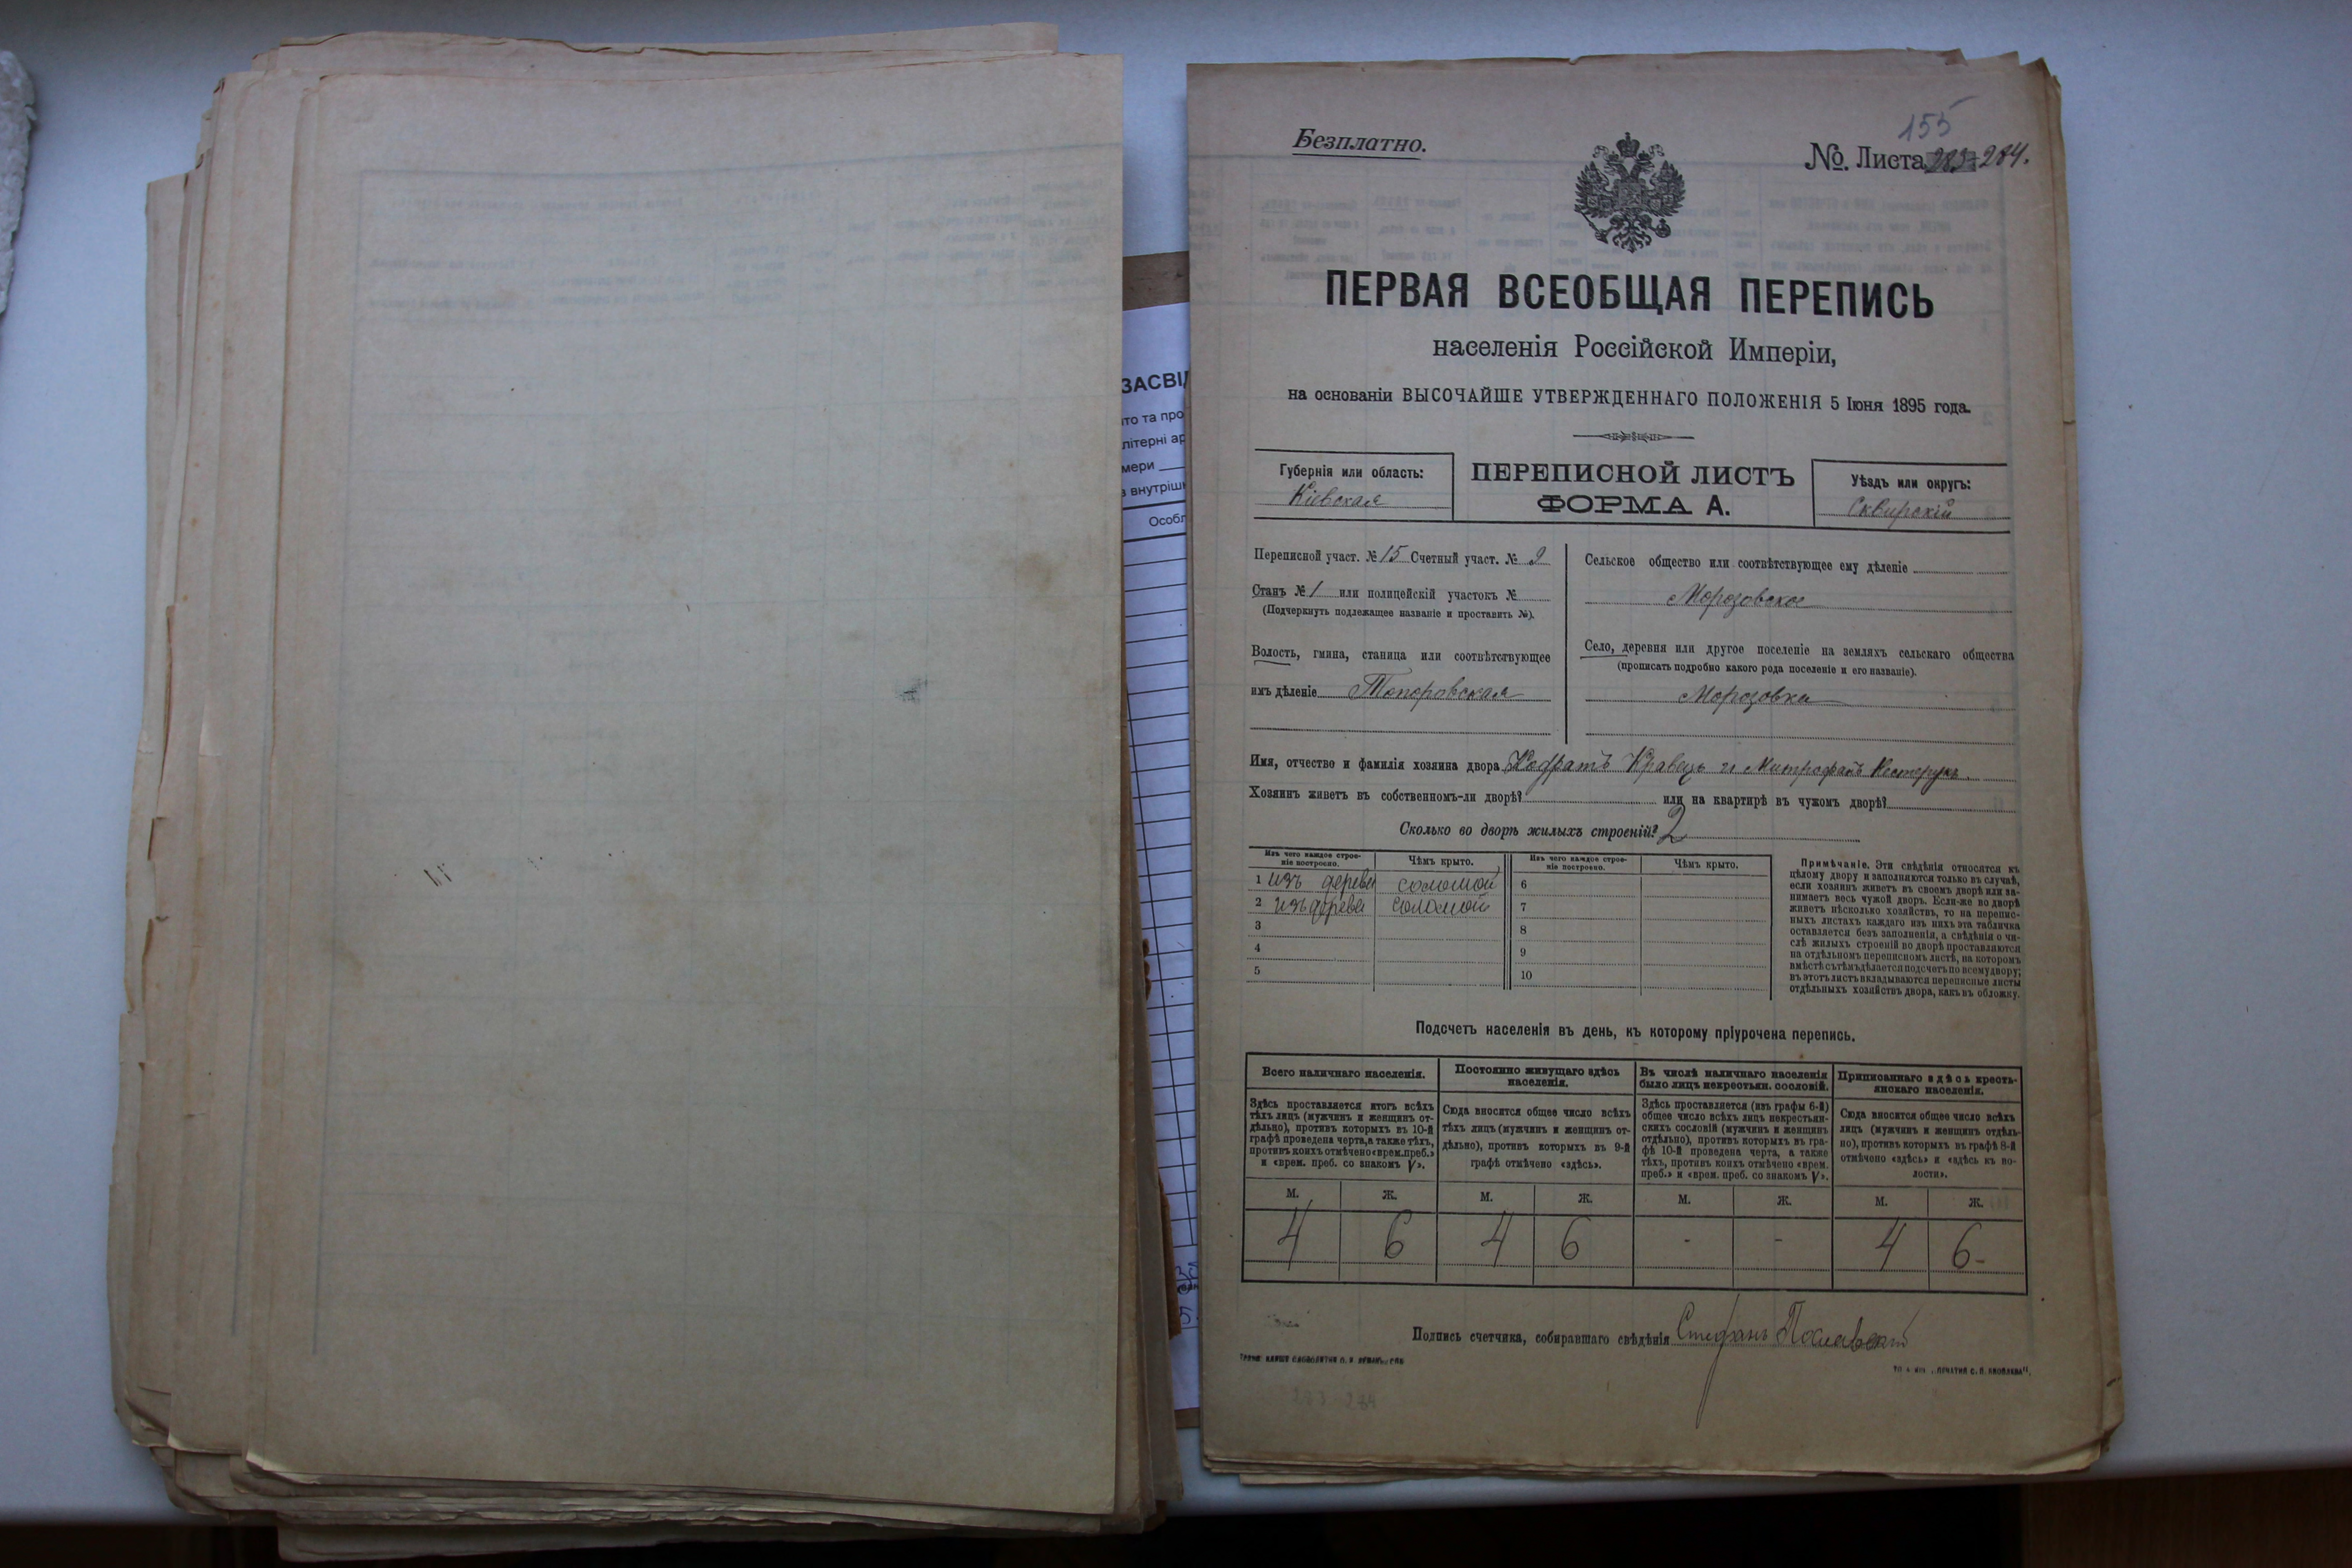 155
Безплатно.
№. Листа 283-284.
ПЕРВАЯ ВСЕОБЩАЯ ПЕРЕПИСЬ
населенія Россійской Имперіи,
на основаніи ВЫСОЧАЙШЕ УТВЕРЖДЕННАГО ПОЛОЖЕНІЯ 5 Іюня 1895 года.
Губернія или область:
Кіевская
ПЕРЕПИСНОЙ ЛИСТЪ
ФОРМА А.
Уѣздъ или округъ:
Сквирскій
Переписной участ. № 15 Счетный участ. № 9
Станъ № 1 или полицейскій участокъ №
(Подчеркнуть подлежащее названіе и проставить №).
Волость, гмина, станица или соотвѣтствующее
имъ дѣленіе Топоровская
Сельское общество или соотвѣтствующее ему дѣленіе
Морозовское
Село, деревня или другое поселеніе на земляхъ сельскаго общества
(прописать подробно какого рода поселеніе и его названіе).
Морозовка
Имя, отчество и фамилія хозяина двора Кодратъ Кравець и Митрофанъ Нестерукъ.
Хозяинъ живетъ въ собственномъ-ли дворѣ? или на квартирѣ въ чужомъ дворѣ?
Сколько во дворѣ жилыхъ строеній? 2
Изъ чего каждое строе-
ніе построено.
Чѣмъ крыто.
Изъ чего каждое строе-
ніе построено.
Чѣмъ крыто.
1 изъ дерева соломой 6
2 изъ дерева соломой 7
3 8
4 9
5 10
Примѣчаніе. Эти свѣдѣнія относятся къ
цѣлому двору и заполняются только въ случаѣ,
если хозяинъ живетъ въ своемъ дворѣ или за-
нимаетъ весь чужой дворъ. Если-же во дворѣ
живетъ нѣсколько хозяйствъ, то на перепис-
ныхъ листахъ каждаго изъ нихъ эта табличка
оставляется безъ заполненія, а свѣдѣнія о чи-
слѣ жилыхъ строеній во дворѣ проставляются
на отдѣльномъ переписномъ листѣ, на которомъ
вмѣстѣ съ тѣмъ дѣлается подсчетъ по всему двору;
въ этотъ листъ вкладываются переписные листы
отдѣльныхъ хозяйствъ двора, какъ въ обложку.
Подсчетъ населенія въ день, къ которому пріурочена перепись.
Всего наличнаго населенія.
Постоянно живущаго здѣсь
населенія.
Въ числѣ наличнаго населенія
было лицъ некрестьян. сословій.
Приписаннаго здѣсь кресть-
янскаго населенія.
Здѣсь проставляется итогъ всѣхъ
тѣхъ лицъ (мужчинъ и женщинъ от-
дѣльно), противъ которыхъ въ 10-й
графѣ проведена черта, а также тѣхъ,
противъ коихъ отмѣчено «врем. преб.»
и «врем. преб. со знакомъ V».
Сюда вносится общее число всѣхъ
тѣхъ лицъ (мужчинъ и женщинъ от-
дѣльно), противъ которыхъ въ 9-й
графѣ отмѣчено «здѣсь».
Здѣсь проставляется (изъ графы 6-й)
общее число всѣхъ лицъ некрестьян-
скихъ сословій (мужчинъ и женщинъ
отдѣльно), противъ которыхъ въ гра-
фѣ 10-й проведена черта, а также
тѣхъ, противъ коихъ отмѣчено «врем.
преб.» и «врем. преб. со знакомъ V».
Сюда вносится общее число всѣхъ
лицъ (мужчинъ и женщинъ отдѣль-
но), противъ которыхъ въ графѣ 8-й
отмѣчено «здѣсь» и «здѣсь къ во-
лости».
М. Ж. М. Ж. М. Ж. М. Ж.
4 6 4 6 - - 4 6-
Подпись счетчика, собиравшаго свѣдѣнія Стефанъ
283-284
ЗАСВІ
то та про
літерні ар
мери
з внутріш
Особл